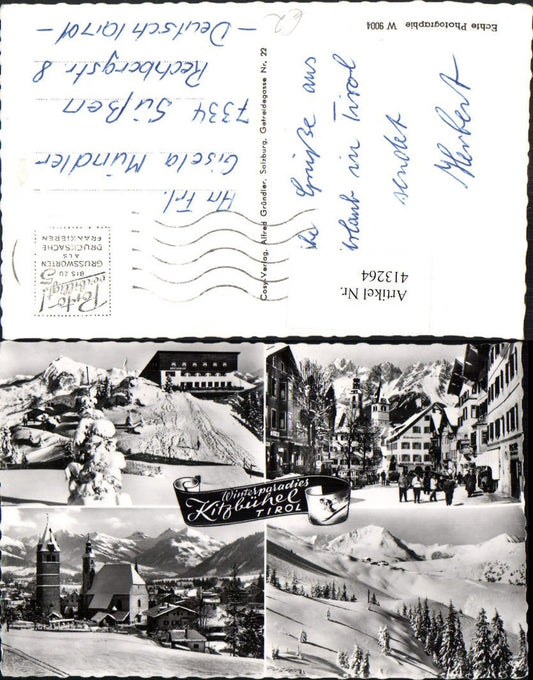 Echte Photographie W 9004
Grüße aus
Urlaub in Tirol
sendet
Herbert
Cosy-Verlag, Alfred Gründler, Salzburg, Getreidegasse Nr. 22
Porto-
verbilligt!
BIS ZU 5
GRUSSWORTEN
ALS
DRUCKSACHE
FRANKIEREN
An Frl.
Gisela Mündler
7334 Süßen
Rechbergstr 8
Artikel Nr.
413264
Winterparadies
Kitzbühel
TIROL